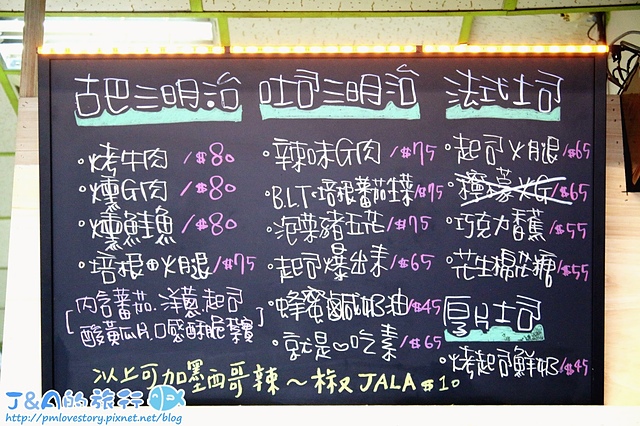 古巴三明治
·烤牛肉/$80
·燻G肉/$80
·燻鮭魚/$80
·培根⊕火腿/$75
[內含蕃茄.洋蔥.起司
酸黃瓜片,口感酥脆紮實]
吐司三明治
·辣味G肉/$75
·B.L.T.培根蕃茄生菜/$75
·泡菜豬五花/$75
·起司爆出來/$65
·蜂蜜鹹奶油/$45
·就是♡吃素/$65
法式土司
·起司火腿/$65
·檸檬火G/$65
·巧克力香蕉/$55
·花生棉花糖/$55
厚片土司
·烤起司鮮奶/$45
以上可加墨西哥辣~椒 JALA $10
J&A的旅行
http://pmlovestory.pixnet.net/blog